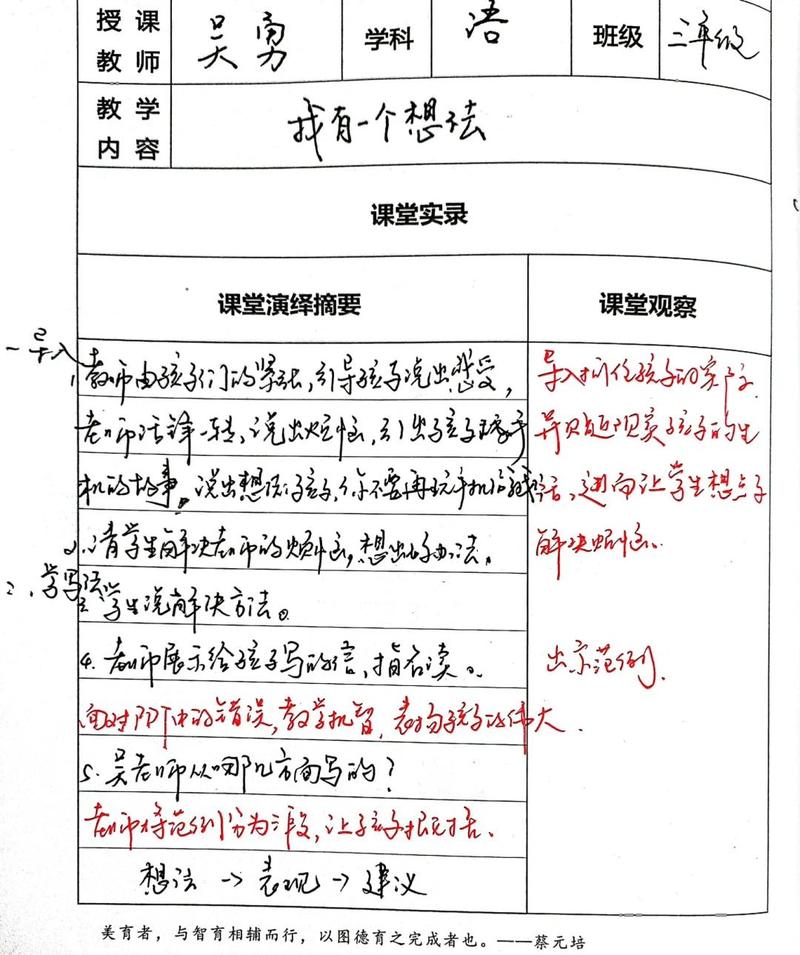 授课教师 吴勇 学科 语 班级 三年级
教学内容 我有一个想法
课堂实录
课堂演绎摘要 课堂观察
一 导入
1、教师由孩子们的紧张,引导孩子说出感受,
老师话锋一转,说出烦恼,引出孩子玩手
机的故事。说出想法:孩子,你不要再玩手机
2、请学生解决老师的烦恼,想出好办法。
二、学写
3、学生说解决方法。
4、老师展示给孩子写的信,指名读。
面对PPT中的错误,教学机智,表扬孩子的伟大.
5、吴老师从哪几方面写的?
老师将范例分为三段,让孩子概括、
想法→表现→建议
导入抓住孩子的实际.
并贴近现实孩子的生
活、进而让学生想点子
解决烦恼.
出示范例.
美育者,与智育相辅而行,以图德育之完成者也。——蔡元培